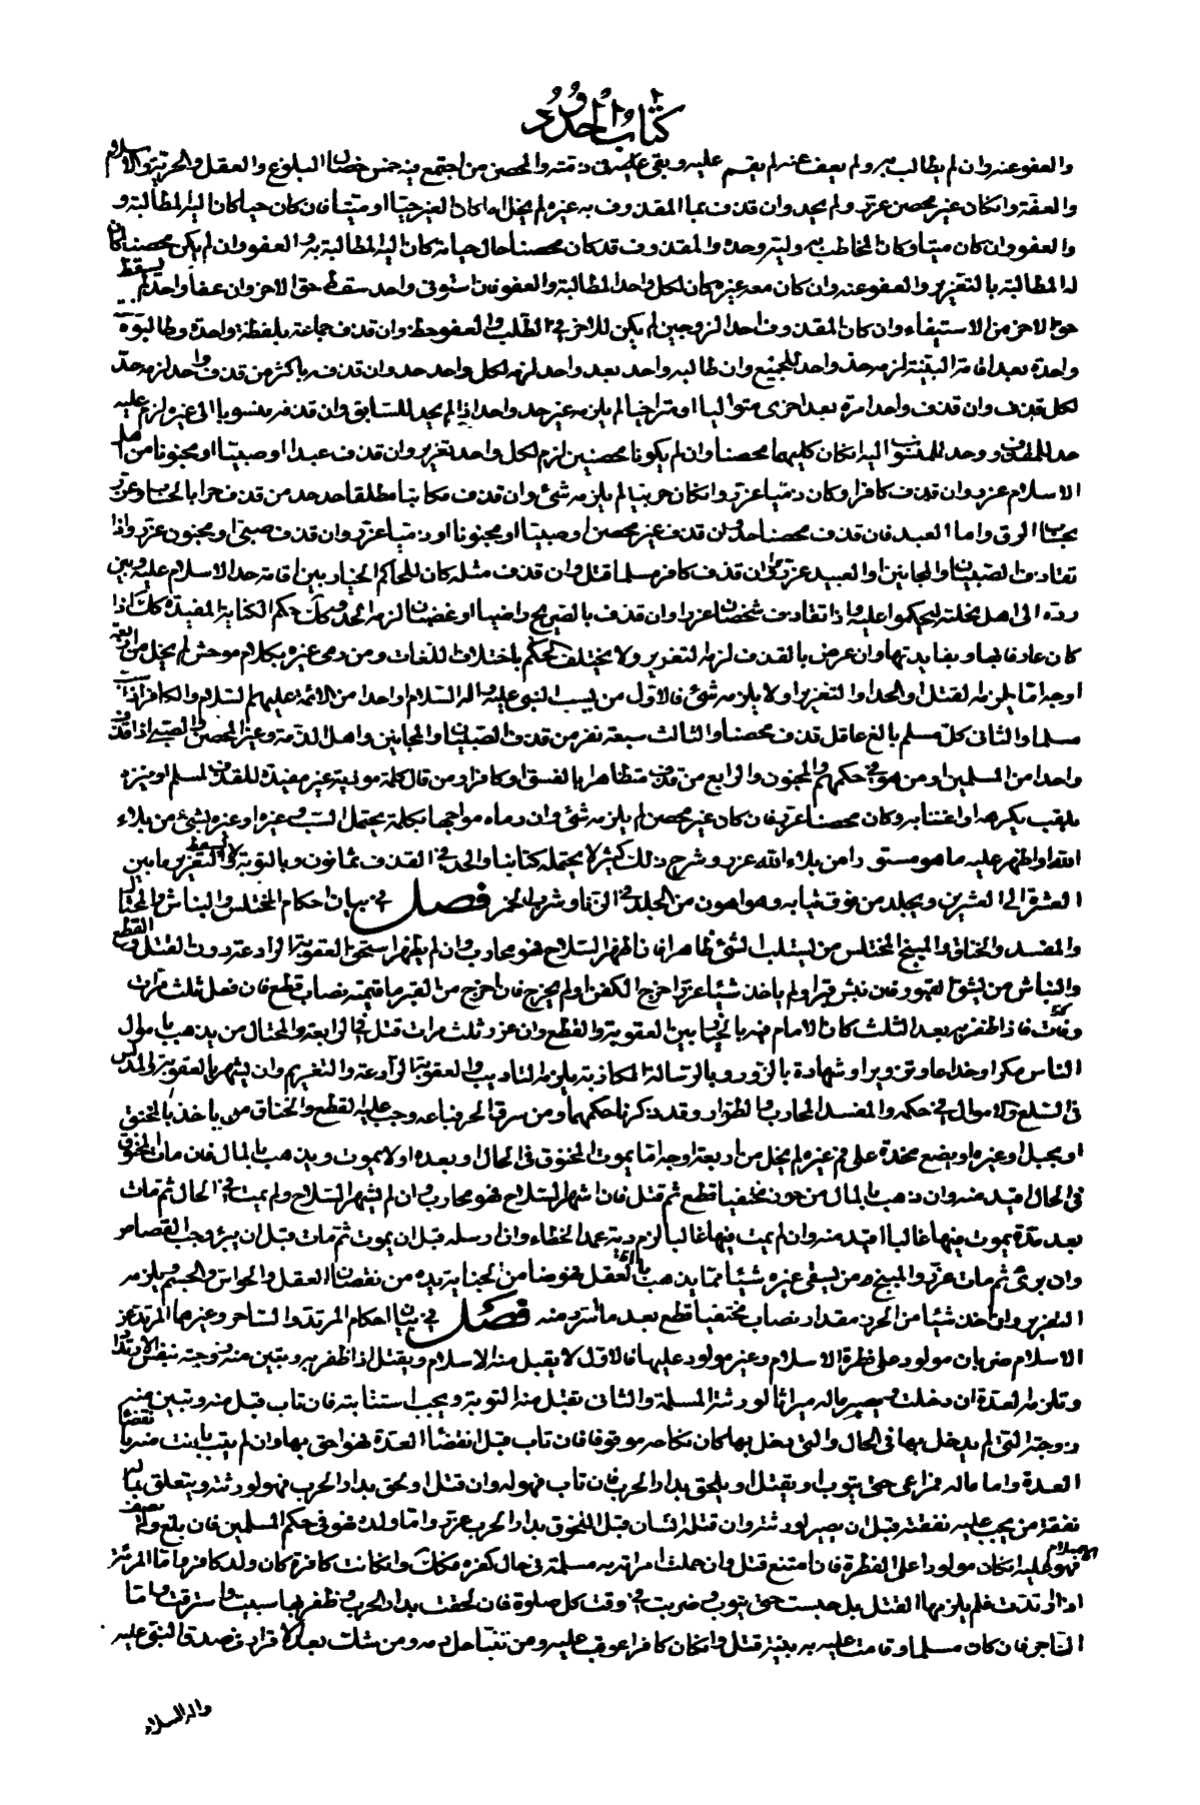 كتاب الحدود
والعفو عنه وان لم يطالب به ولم يعف عنه لم يقم عليه وبقى عليه فى ذمته والمحصن من اجتمع فيه خمس خصال البلوغ والعقل والحرية والاسلام
والعفة وان كان غير محصن عزر ولم يحد وان قذف بما المقذوف به غيره لم يخل اما كان الغير حيا او ميتا فان كان حيا كان اليه المطالبة و
والعفو وان كان ميتا وكان المخاطب به وليه وحده والمقذوف قد كان محصنا حال حياته كان اليه المطالبة به والعفو وان لم يكن محصنا كان
له المطالبة بالتعزير والعفو عنه وان كان معه غيره كان لكل واحد المطالبة والعفو فان استوفى واحد سقط حق الاخر وان عفا واحد لم يسقط
حق الاخر من الاستيفاء وان كان المقذوف احد الزوجين لم يكن للاخر فى الطلب والعفو حظ وان قذف جماعة بلفظة واحدة وطالبوه
واحدة بعد اقامة البينة لزمه حد واحد للجميع وان طالبه واحد بعد واحد لزمه لكل واحد حد وان قذف باكثر من قذف واحد لزمه حد
لكل قذف وان قذف واحدا مرة بعد اخرى متواليا او متراخيا لم يلزمه غير حد واحد اذا لم يحد للسابق وان قذف منسوبا الى غيره لزم عليه
حد للمقذوف وحد للمنسوب اليه ان كان كليهما محصنا وان لم يكونا محصنين لزم لكل واحد تعزير وان قذف عبدا او صبيا او مجنونا من اهل
الاسلام عزر وان قذف كافرا وكان ذميا عزر وان كان حربيا لم يلزمه شئ وان قذف مكاتبا مطلقا حد حد من قذف حرا بالحساب وعزر
بحساب الرق واما العبد فان قذف محصنا حد وان قذف غير محصن او صبيا او مجنونا او ذميا عزر وان قذف صبى او مجنون عزر واذا
تقاذف الصبيان والمجانين والعبيد عزروا وان قذف كافر مسلما قتل وان قذف مثله كان للحاكم الخيار بين اقامة حد الاسلام عليه وبين
رده الى اهل نحلته ليحكموا عليه واذا تقاذف شخصان عزرا وان قذف بالصريح راضيا او غضبان لزمه الحد وكذلك حكم الكناية المفيدة كذلك اذا
كان عارفا بها وبفايدتها وان عرض بالقذف لزمه التعزير ولا يختلف الحكم باختلاف اللغات ومن رمى غيره بكلام موحش لم يخل من اربعة
اوجه اما يلزمه القتل او الحد او التعزير او لا يلزمه شئ فالاول من يسب النبى عليه واله السلام او واحدا من الائمة عليهم السلام والكافر اذا سب
مسلما والثانى كل مسلم بالغ عاقل قذف محصنا والثالث سبعة نفر من قذف الصبيان والمجانين واهل الذمة وغير المحصن والصبى اذا قذف
واحدا من المسلمين او من هو فى حكمهم والمجنون والرابع من قذف متظاهرا بالفسق او كافرا ومن قال كلمة موذية غير مفيدة للقذف لمسلم او نبزه
بلقب يكرهه او اغتابه وكان محصنا عزر فان كان غير محصن لم يلزمه شئ وان رماه مواجها بكلمة يحتمل السب وغيره او غيره بشئ من بلاء
الله او اظهر عليه ما هو مستور من بلاء الله عزر وشرح ذلك كثير لا يحتمله كتابنا والحد فى القذف ثمانون وبالتوبة لا يسقط والتعزير ما بين
العشرة الى العشرين ويجلد من فوق ثيابه وهو اهون من الجلد فى الزنا وشرب الخمر فصل فى بيان احكام المختلس والنباش والمحتال
والمفسد والخناق والمبنج المختلس من يستلب الشئ ظاهرا فان اظهر السلاح فهو محارب وان لم يظهر استحق العقوبة الرادعة دون القتل والقطع
والنباش من ينبش القبور فان نبش قبرا ولم ياخذ شيئا عزر اخرج الكفن او لم يخرج فان اخرج من القبر ما قيمته نصاب قطع فان فعل ثلث مرات
وفات فاذا ظفر به بعد الثلث كان الامام فيه بالخيار بين العقوبة والقطع وان عزر ثلث مرات قتل فى الرابعة والمحتال من يذهب باموال
الناس مكرا وخداعا وتزويرا وشهادة بالزور وبالرسالة المكاذبة يلزمه التاديب والعقوبة الرادعة والتغريم وان يشهر بالعقوبة والمدلس
فى السلع والاموال فى حكمه والمفسد المحارب والطرار وقد ذكرنا حكمهما ومن سرق الحر فباعه وجب عليه القطع والخناق من ياخذ بالخنق
او بحبل او غيره او يضع مخدة على فم غيره لم يخل من اربعة اوجه اما يموت المخنوق فى الحال او بعده او لا يموت ويذهب بالمال فان مات المخنوق
فى الحال اقيد منه وان ذهب بالمال من دون مختفيا قطع ثم قتل فان اشهر السلاح فهو محارب وان لم يشهر السلاح ولم يمت فى الحال ثم مات
بعد مدة يموت فيها غالبا اقيد منه وان لم يمت فيها غالبا لزم دية عمد الخطاء وان ارسله قبل ان يموت ثم مات قبل ان يبرؤ وجب القصاص
وان برئ ثم مات عزر والمبنج من يسقى غيره شيئا مما يذهب بالعقل فهو ضامن لجنايته من نقصان العقل والحواس والجسم ويلزمه
التعزير وان اخذ شيئا من الحرز مقدار نصاب مختفيا قطع بعد ما استرد منه فصل فى بيان احكام المرتد والساحر وغيرهما المرتد عن
الاسلام ضربان مولود على فطرة الاسلام وغير مولود عليها فالاول لا يقبل منه الاسلام ويقتل اذا ظفر به وتبين منه زوجته بنفس الارتداد
وتلزمه العدة ان دخلت ويصير ماله ميراثا لورثته المسلمة والثانى تقبل منه التوبة ويجب استتابته فان تاب قبل منه وتبين منه
زوجته التى لم يدخل بها فى الحال والتى دخل بها كان نكاحه موقوفا فان تاب قبل انقضاء العدة فهو احق بها وان لم يتب بانت منه بانقضاء
العدة واما ماله فمراعى حتى يتوب او يقتل او يلحق بدار الحرب فان تاب فهو له وان قتل او لحق بدار الحرب فهو لورثته ويتعلق بماله
نفقة من يجب عليه نفقته قبل ان يصير لورثته وان قتله انسان قبل اللحوق بدار الحرب عزر واما ولده فهو فى حكم المسلمين فان بلغ ولم يصف الاسلام
فهو عليه ان كان مولودا على الفطرة فان امتنع قتل وان حملت امراته به مسلمة فى حال كفره فكذلك وان كانت كافرة كان ولده كافرا واما المرتدة
اذا ارتدت فلم يلزمها القتل بل حبست حتى تتوب وضربت فى وقت كل صلوة فان لحقت بدار الحرب وظفر بها سبيت واسترقت واما
الساحر فان كان مسلما وقامت عليه به بينة قتل وان كان كافرا عوقب عليه ومن تنبا حل دمه ومن شك بعد الاقرار فى صدق النبى عليه
واله السلام